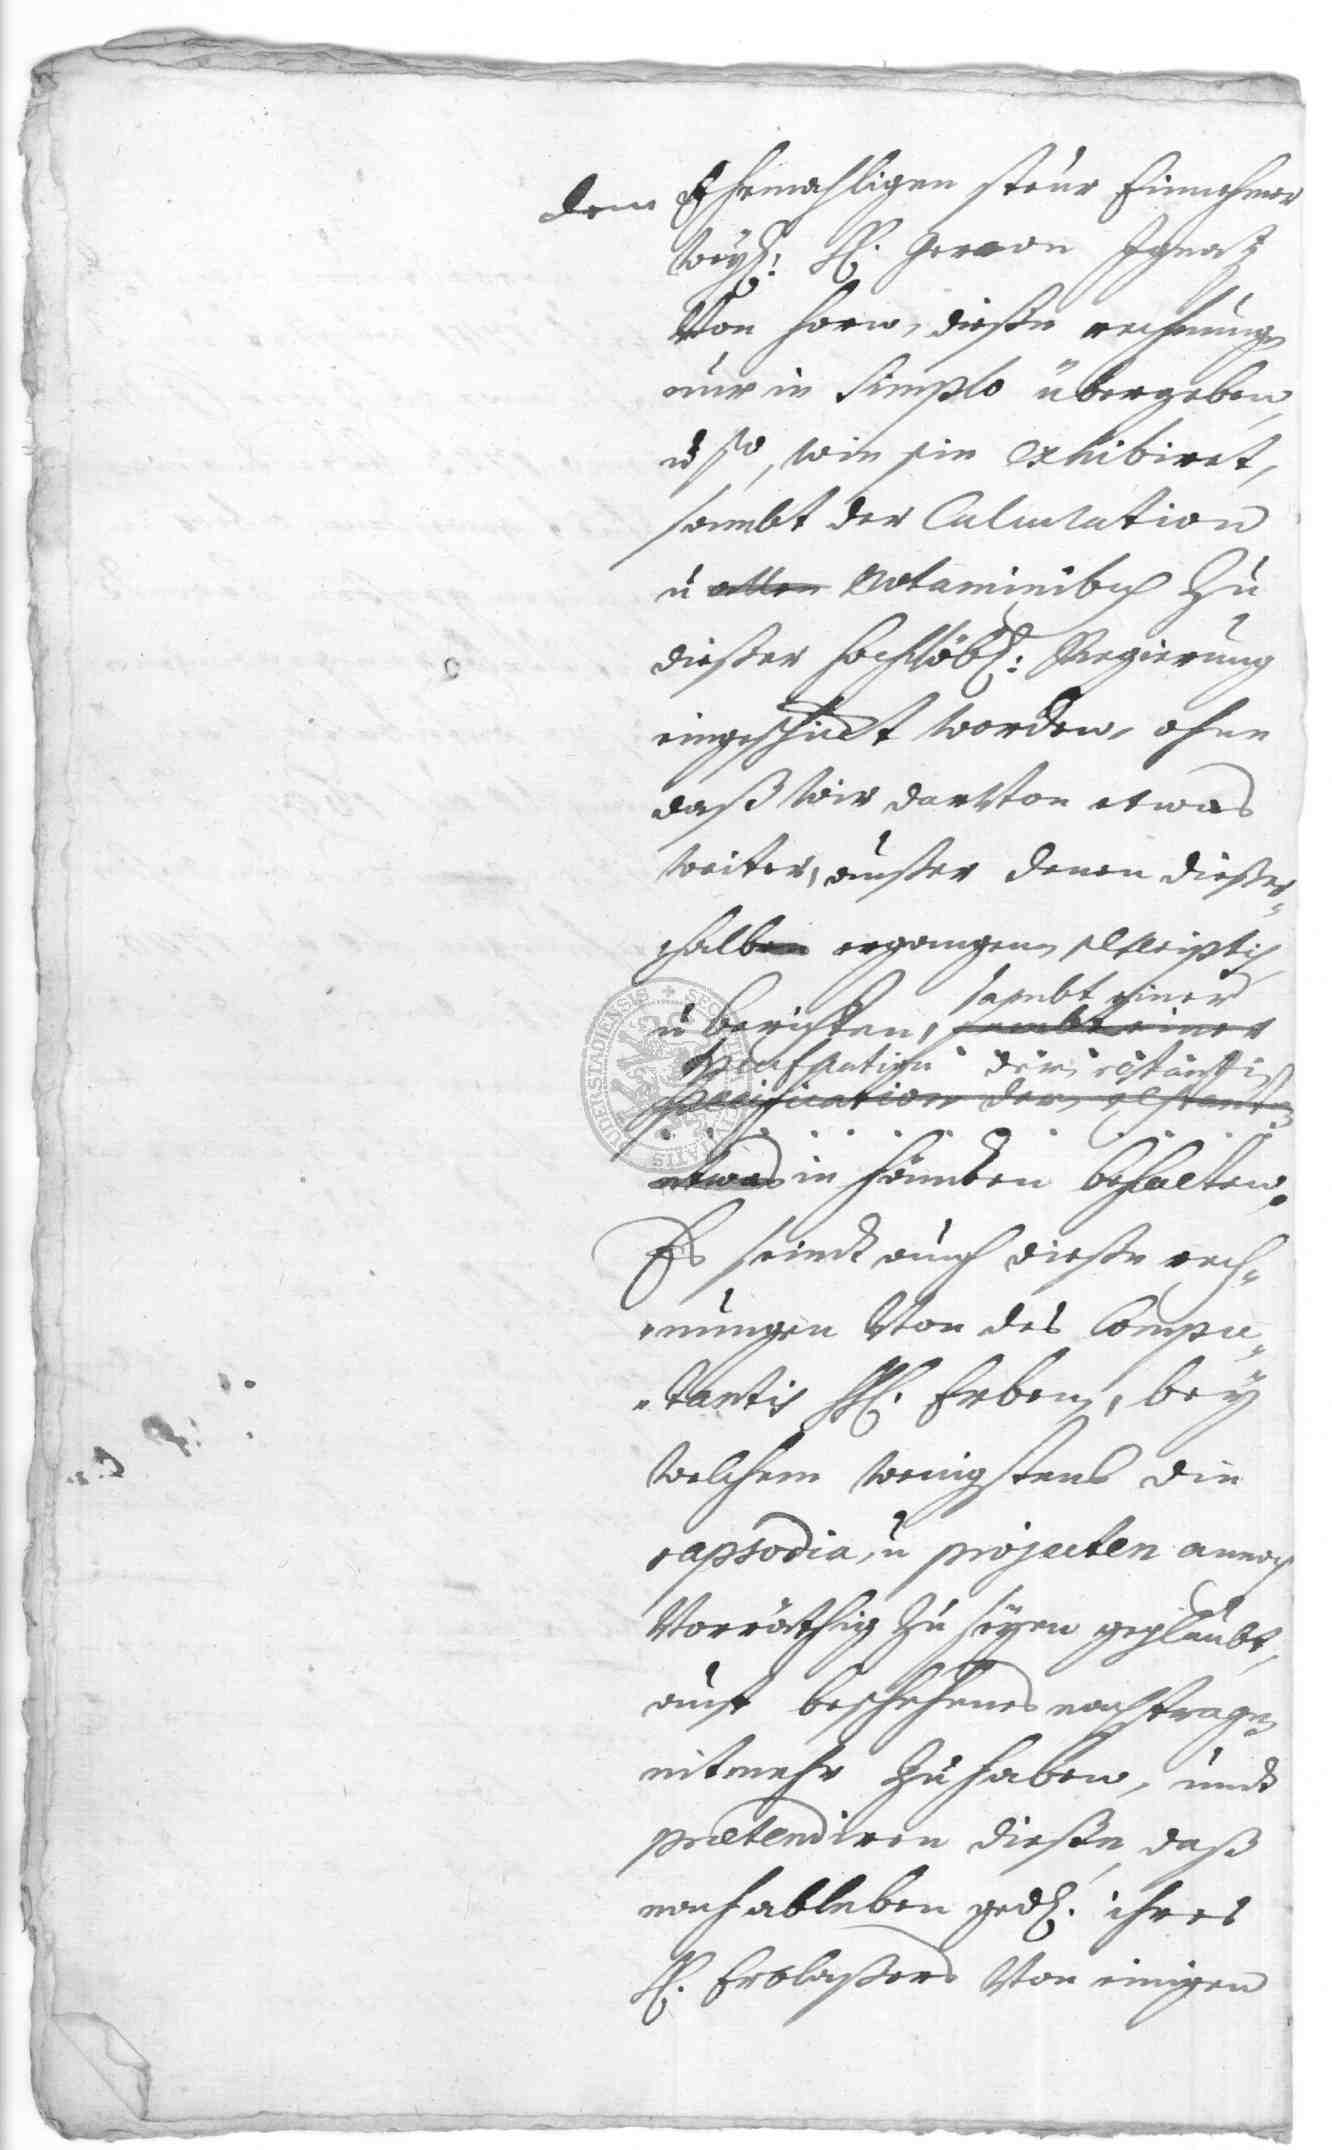 dem Ehemahligen steur Einnehmer
weyl: H. Gereon Ignatz
Von Horn, dieße rechnung
nur in Simplo übergeben,
u so, wie sie exhibiret,
sambt der Calculation
u allen Notaminibus zu
dießer hochlöbl: Regierung
eingeschickt worden, ohne
daß wir darVon etwas
weiter, außer denen dießer-
halben ergangenen rescriptis
sambt einer
u berichten, sambt einer
specification der restanten
etwas in händen behalten.
Es seindt auch dieße rech-
nungen Von des Compu-
tantis H. Erben, bey
welchem wenigstens die
rapsodia, u projecten annoch
Vorräthig zu seyen geglaubt,
auf beschehenes nachfragen
nit mehr zu haben, undt
prætendiren dieße, daß
nach ableben gedl. ihres
H. Erblaßers Von einigen